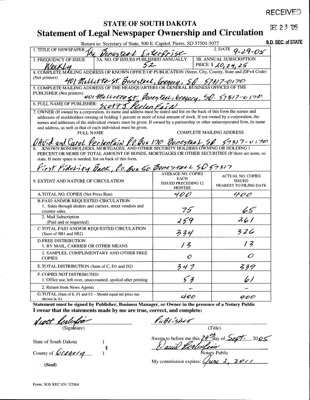 RECEIVED
DEC 23 '05
S.D. SEC. of STATE
STATE OF SOUTH DAKOTA
Statement of Legal Newspaper Ownership and Circulation
Return to: Secretary of State, 500 E. Capitol, Pierre, SD 57501-5077
1. TITLE OF NEWSPAPER The Bonesteel Enterprise
2. DATE 9-29-05
3. FREQUENCY OF ISSUE Weekly
3A. NO. OF ISSUES PUBLISHED ANNUALLY 52
3B. ANNUAL SUBSCRIPTION PRICE $ 20, 24, 25
4. COMPLETE MAILING ADDRESS OF KNOWN OFFICE OF PUBLICATION (Street, City, County, State and ZIP+4 Code) (Not printers)
401 Mellette St Bonesteel, Gregory, SD 57317-0170
5. COMPLETE MAILING ADDRESS OF THE HEADQUARTERS OR GENERAL BUSINESS OFFICES OF THE PUBLISHER (Not printer)
401 Mellette St Bonesteel, Gregory, SD 57317-0170
6. FULL NAME OF PUBLISHER: Scott S
7. OWNER (If owned by a corporation, its name and address must be stated and list on the back of this form the names and addresses of stockholders owning or holding 1 percent or more of total amount of stock. If not owned by a corporation, the names and addresses of the individual owners must be given. If owned by a partnership or other unincorporated firm, its name and address, as well as that of each individual must be given.
FULL NAME
COMPLETE MAILING ADDRESS
David and Carol P.O. Box 170 Bonesteel, SD 57317-0170
8. KNOWN BONDHOLDERS, MORTGAGES, AND OTHER SECURITY HOLDERS OWNING OR HOLDING 1 PERCENT OR MORE OF TOTAL AMOUNT OF BONDS, MORTGAGES OR OTHER SECURITIES (If there are none, so state. If more space is needed, list on back of this form.
First Fidelity Bank, P.O. Box 60 Bonesteel SD 57317
9. EXTENT AND NATURE OF CIRCULATION
AVERAGE NO. COPIES EACH ISSUED PRECEDING 12 MONTHS
ACTUAL NO. COPIES ISSUED NEAREST TO FILING DATE
A. TOTAL NO. COPIES (Net Press Run) 400 400
B. PAID AND/OR REQUESTED CIRCULATION
1. Sales through dealers and carriers, street vendors and counter sales. 75 65
2. Mail Subscription (Paid and or requested) 259 261
C. TOTAL PAID AND/OR REQUESTED CIRCULATION (Sum of 9B1 and 9B2) 334 326
D. FREE DISTRIBUTION
1. BY MAIL, CARRIER OR OTHER MEANS 13 13
2. SAMPLES, COMPLIMENTARY AND OTHER FREE COPIES 0 0
E. TOTAL DISTRIBUTION (Sum of C, D1 and D2) 347 339
F. COPIES NOT DISTRIBUTED
1. Office use, left over, unaccounted, spoiled after printing 53 61
2. Return from News Agents - -
G. TOTAL (Sum of E, F1 and F2 – Should equal net press run shown in A) 400 400
Statement must be signed by Publisher, Business Manager, or Owner in the presence of a Notary Public
I swear that the statements made by me are true, correct, and complete:
Scott
Publisher
(Signature)
(Title)
State of South Dakota )
County of Gregory )
§
Sworn to before me this 29th day of Sept. 2005
David
Notary Public
(Seal)
My commission expires: June 2, 2011
Form: SOS REC 051 7/2004